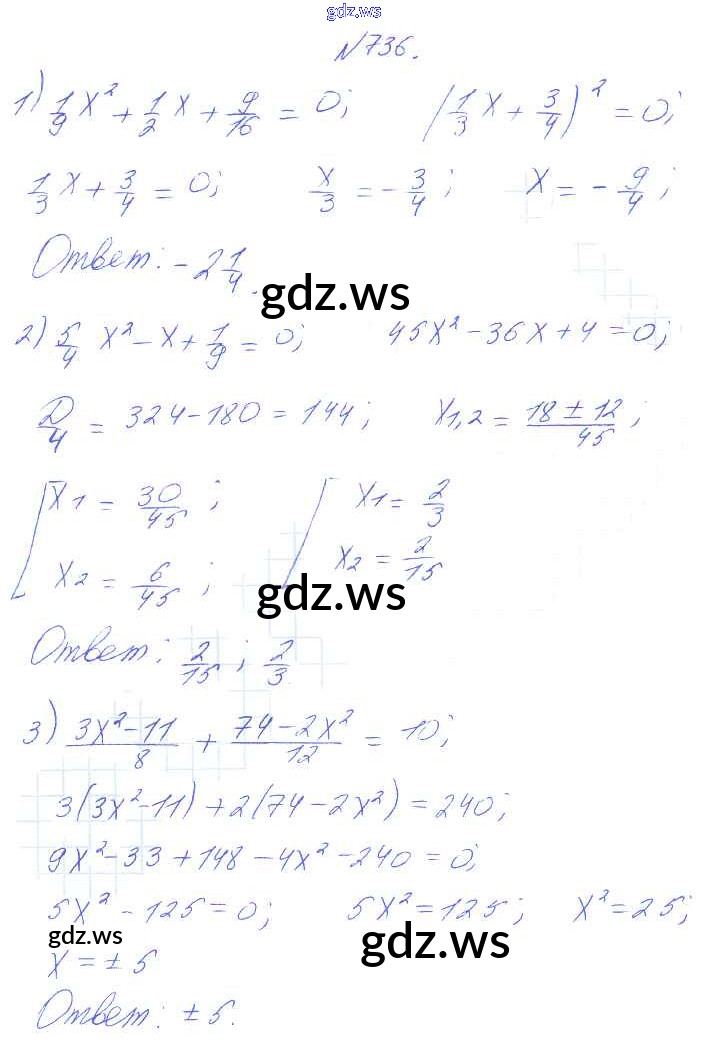 gdz.ws
№736.
1) 1/9 x² + 1/2 x + 9/16 = 0; (1/3 x + 3/4)² = 0;
1/3 x + 3/4 = 0; x/3 = - 3/4; x = - 9/4;
Ответ: - 2 1/4.
gdz.ws
2) 5/4 x² - x + 1/9 = 0; 45x² - 36x + 4 = 0;
D/4 = 324 - 180 = 144; x1,2 = (18 ± 12)/45;
[x1 = 30/45; [x1 = 2/3
x2 = 6/45; x2 = 2/15
gdz.ws
Ответ: 2/15; 2/3
3) (3x² - 11)/8 + (74 - 2x²)/12 = 10;
3(3x² - 11) + 2(74 - 2x²) = 240;
9x² - 33 + 148 - 4x² - 240 = 0;
5x² - 125 = 0; 5x² = 125; x² = 25;
gdz.ws gdz.ws
x = ± 5
Ответ: ± 5.